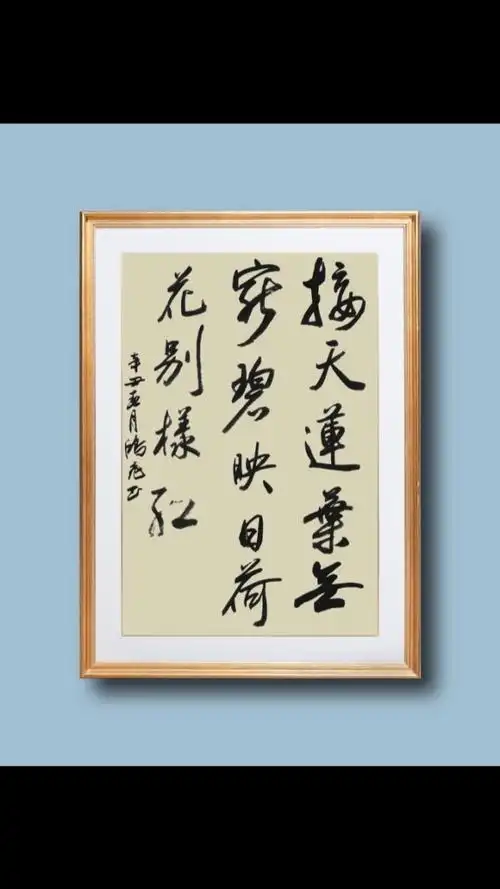 接天蓮葉無
窮碧映日荷
花别樣紅
辛丑五月